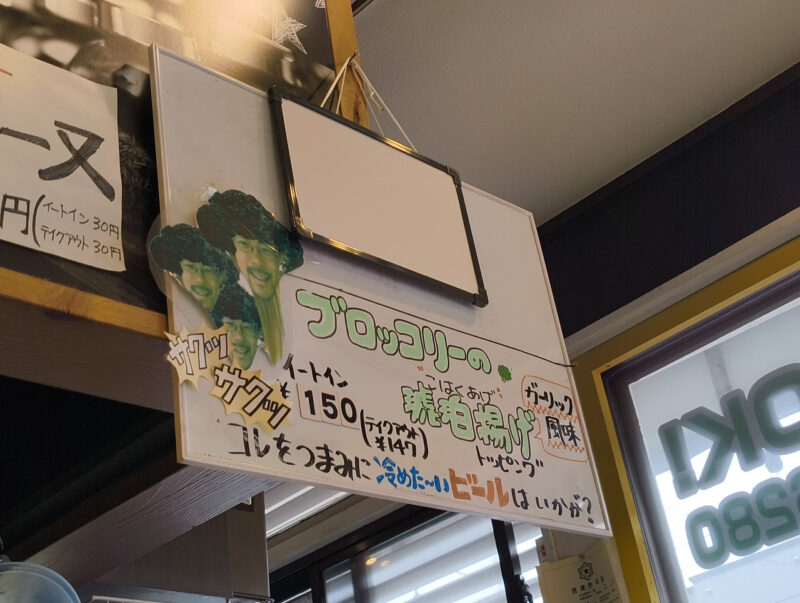 ース
円(イートイン 30円
テイクアウト 30円)
サクッ
サクッ
ブロッコリーの
こはくあげ
琥珀揚げ
ガーリック
風味
トッピング
イートイン
¥150
(テイクアウト
¥147)
コレをつまみに冷めた〜いビールはいかが?
OKI
2580